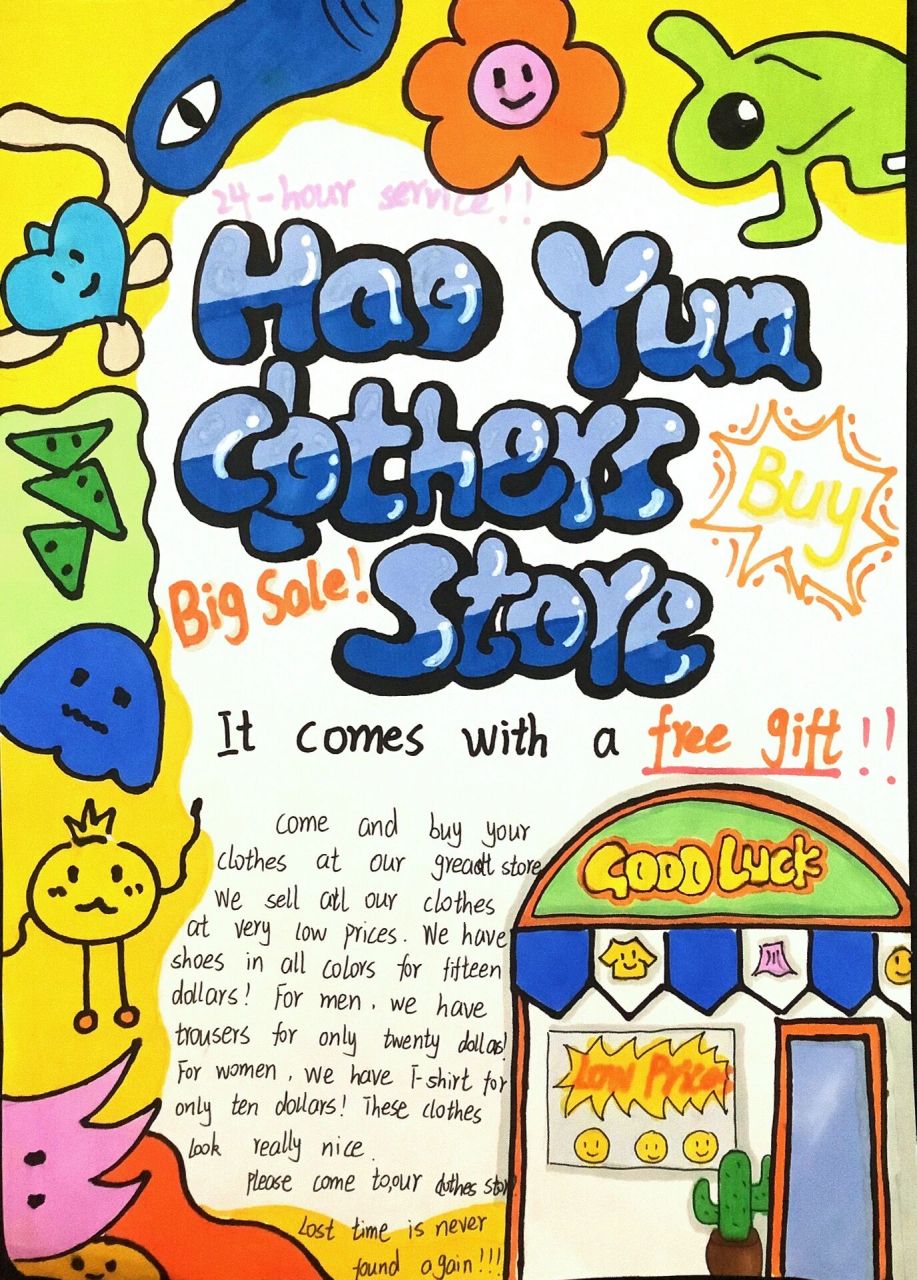 24-hour service!!
Hao Yun
Clothers
Store
Buy
Big Sale!
It comes with a free gift!!
Come and buy your
clothes at our great store
We sell all our clothes
at very low prices. We have
shoes in all colors for fifteen
dollars! For men, we have
trousers for only twenty dollas!
For women, we have T-shirt for
only ten dollars! These clothes
look really nice.
Please come to,our clothes store!
Lost time is never
found again!!!
GOOD LUCK
Low Prices